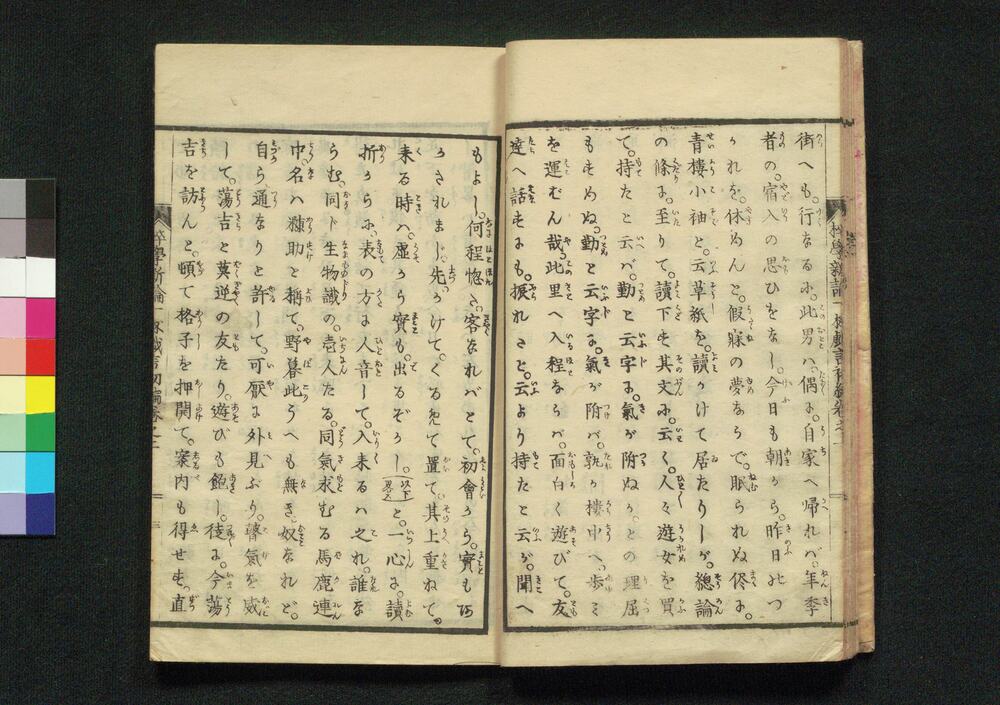 街へも。行なるに。此男ハ。偶に。自家へ帰れバ。年季
者の。宿入の思ひをなし。今日も朝から。昨日のつ
かれを。休めんと。假寐の夢ならで。眠られぬ侭に。
青樓小袖と。云草紙を。讀かけて居たりしが。總論
の條に。至りて。讀下も其文に。云く。人々遊女を買
て。持たと云バ。勤と云字に。氣が附ぬからとの理屈
もせめぬ。勤と云字に。氣が附バ。孰か樓中へ。歩ミ
を運むん哉。此里へ入程ならバ。面白く遊びて。友
達へ話すにも。振れたと。云より持たと云が。聞へ
もよし。何程惚た。客なれバとて。初會から。實も明
かされまじ。先かけて。くるめて置て。其上重ねて。
来る時ハ。虚から實も。出るぞかし。以下畧之と。一心に。讀
折からに。表の方に人音して。入来るハ之れ。誰な
らむ。同ト生物識の。壱人たる。同氣求むる馬鹿連
中。名ハ糠助と稱て。野暮此うへも無き。奴なれど。
自ら通なりと許して。可厭に外見ぶり。聲氣を威
して。蕩吉と莫逆の友たり。遊びも飽し。徒に。今蕩
吉を訪んと。頓て格子を押開て。案内も得せず。直